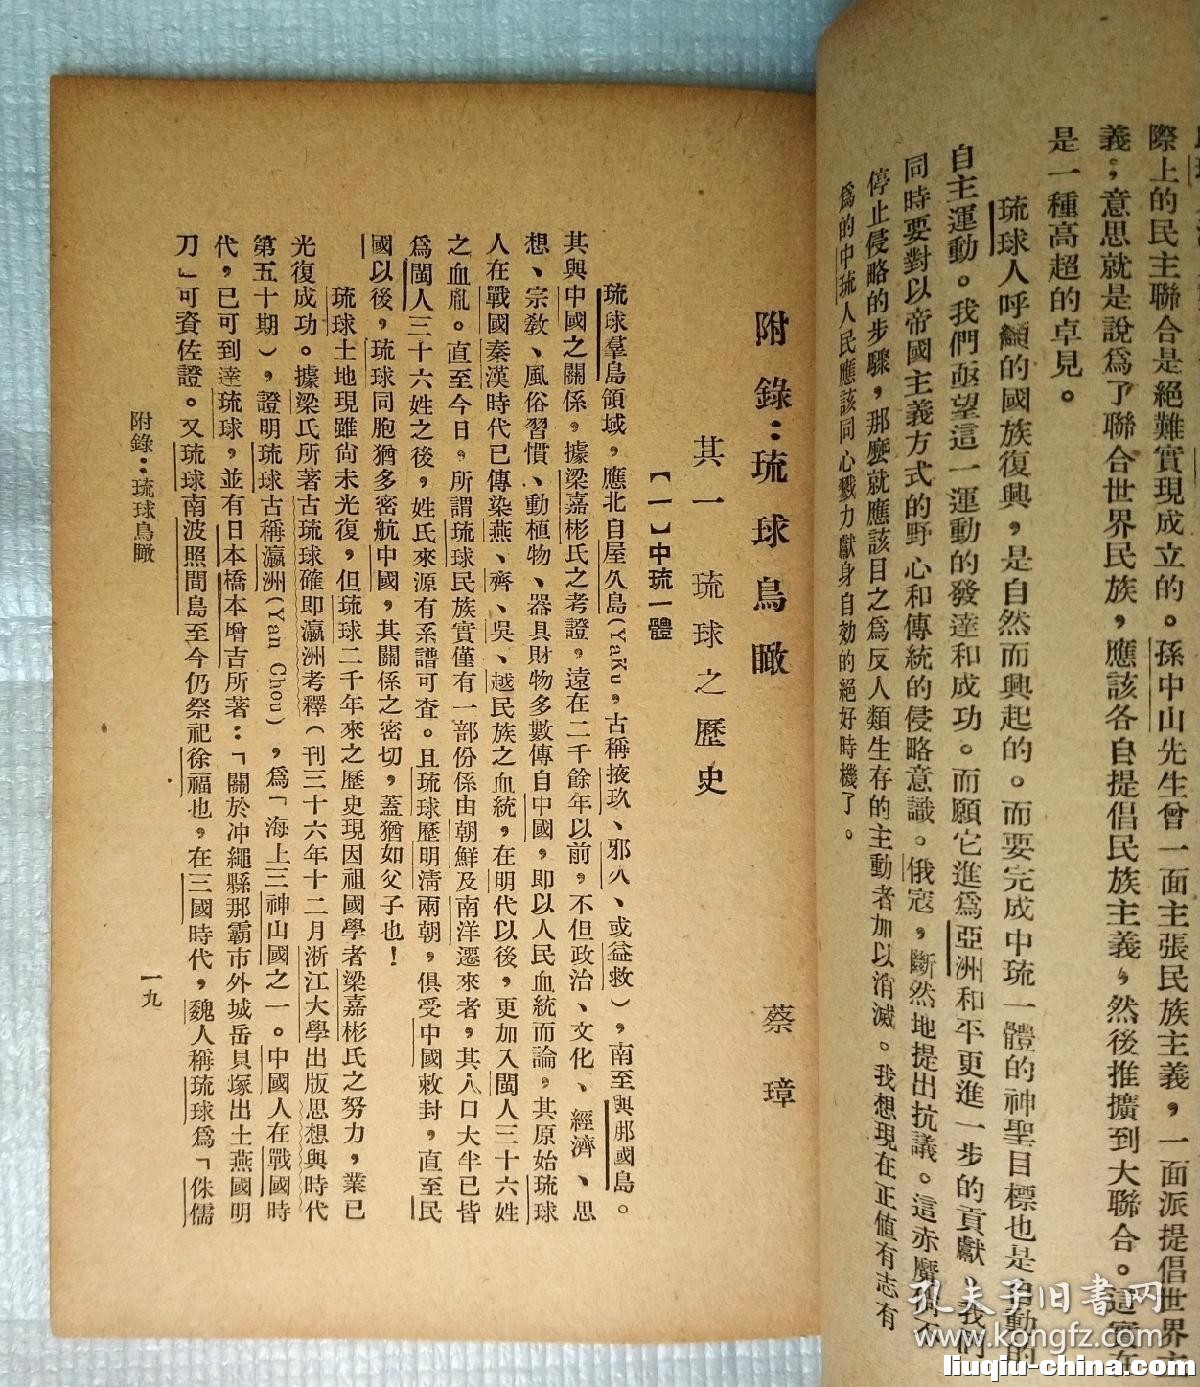 際上的民主聯合是絕難實現成立的。孫中山先生曾一面主張民族主義,一面派提倡世界主
義;意思就是說爲了聯合世界民族,應該各自提倡民族主義,然後推擴到大聯合。這實在
是一種高超的卓見。
琉球人呼籲的國族復興,是自然而興起的。而要完成中琉一體的神聖目標也是自動的
自主運動。我們亟望這一運動的發達和成功。而願它進爲亞洲和平更進一步的貢獻、我們
同時要對以帝國主義方式的野心和傳統的侵略意識。俄寇,斷然地提出抗議。這赤魔倘不
停止侵略的步驟,那麽就應該目之爲反人類生存的主動者加以消滅。我想現在正値有志有
爲的中琉人民應該同心戮力獻身自効的絕好時機了。
附錄:琉球鳥瞰
蔡璋
其一 琉球之歷史
【一】中琉一體
琉球羣島領域,應北自屋久島(YaKu。古稱掖玖、邪久、或益救),南至與那國島。
其與中國之關係,據梁嘉彬氏之考證,遠在二千餘年以前,不但政治、文化、經濟、思
想、宗敎、風俗習慣、動植物、器具財物多數傳自中國,即以人民血統而論,其原始琉球
人在戰國秦漢時代已傳染燕、齊、吳、越民族之血統,在明代以後,更加入閩人三十六姓
之血胤。直至今日,所謂琉球民族實僅有一部份係由朝鮮及南洋遷來者,其人口大半已皆
爲閩人三十六姓之後,姓氏來源有系譜可査。且琉球歷明淸兩朝,俱受中國敕封,直至民
國以後,琉球同胞猶多密航中國,其關係之密切,蓋猶如父子也!
琉球土地現雖尙未光復,但琉球二千年來之歷史現因祖國學者梁嘉彬氏之努力,業已
光復成功。據梁氏所著古琉球確即瀛洲考釋(刊三十六年十二月浙江大學出版思想與時代
第五十期),證明琉球古稱瀛洲(Yan Chou),爲「海上三神山國之一。中國人在戰國時
代,已可到達琉球,並有日本橋本增吉所著:「關於冲繩縣那霸市外城岳貝塚出土燕國明
刀」可資佐證。又琉球南波照間島至今仍祭祀徐福也,在三國時代,魏人稱琉球爲「侏儒
附錄:琉球鳥瞰
一九
孔夫子旧书网
www.kongfz.com
liuqiu-china.com